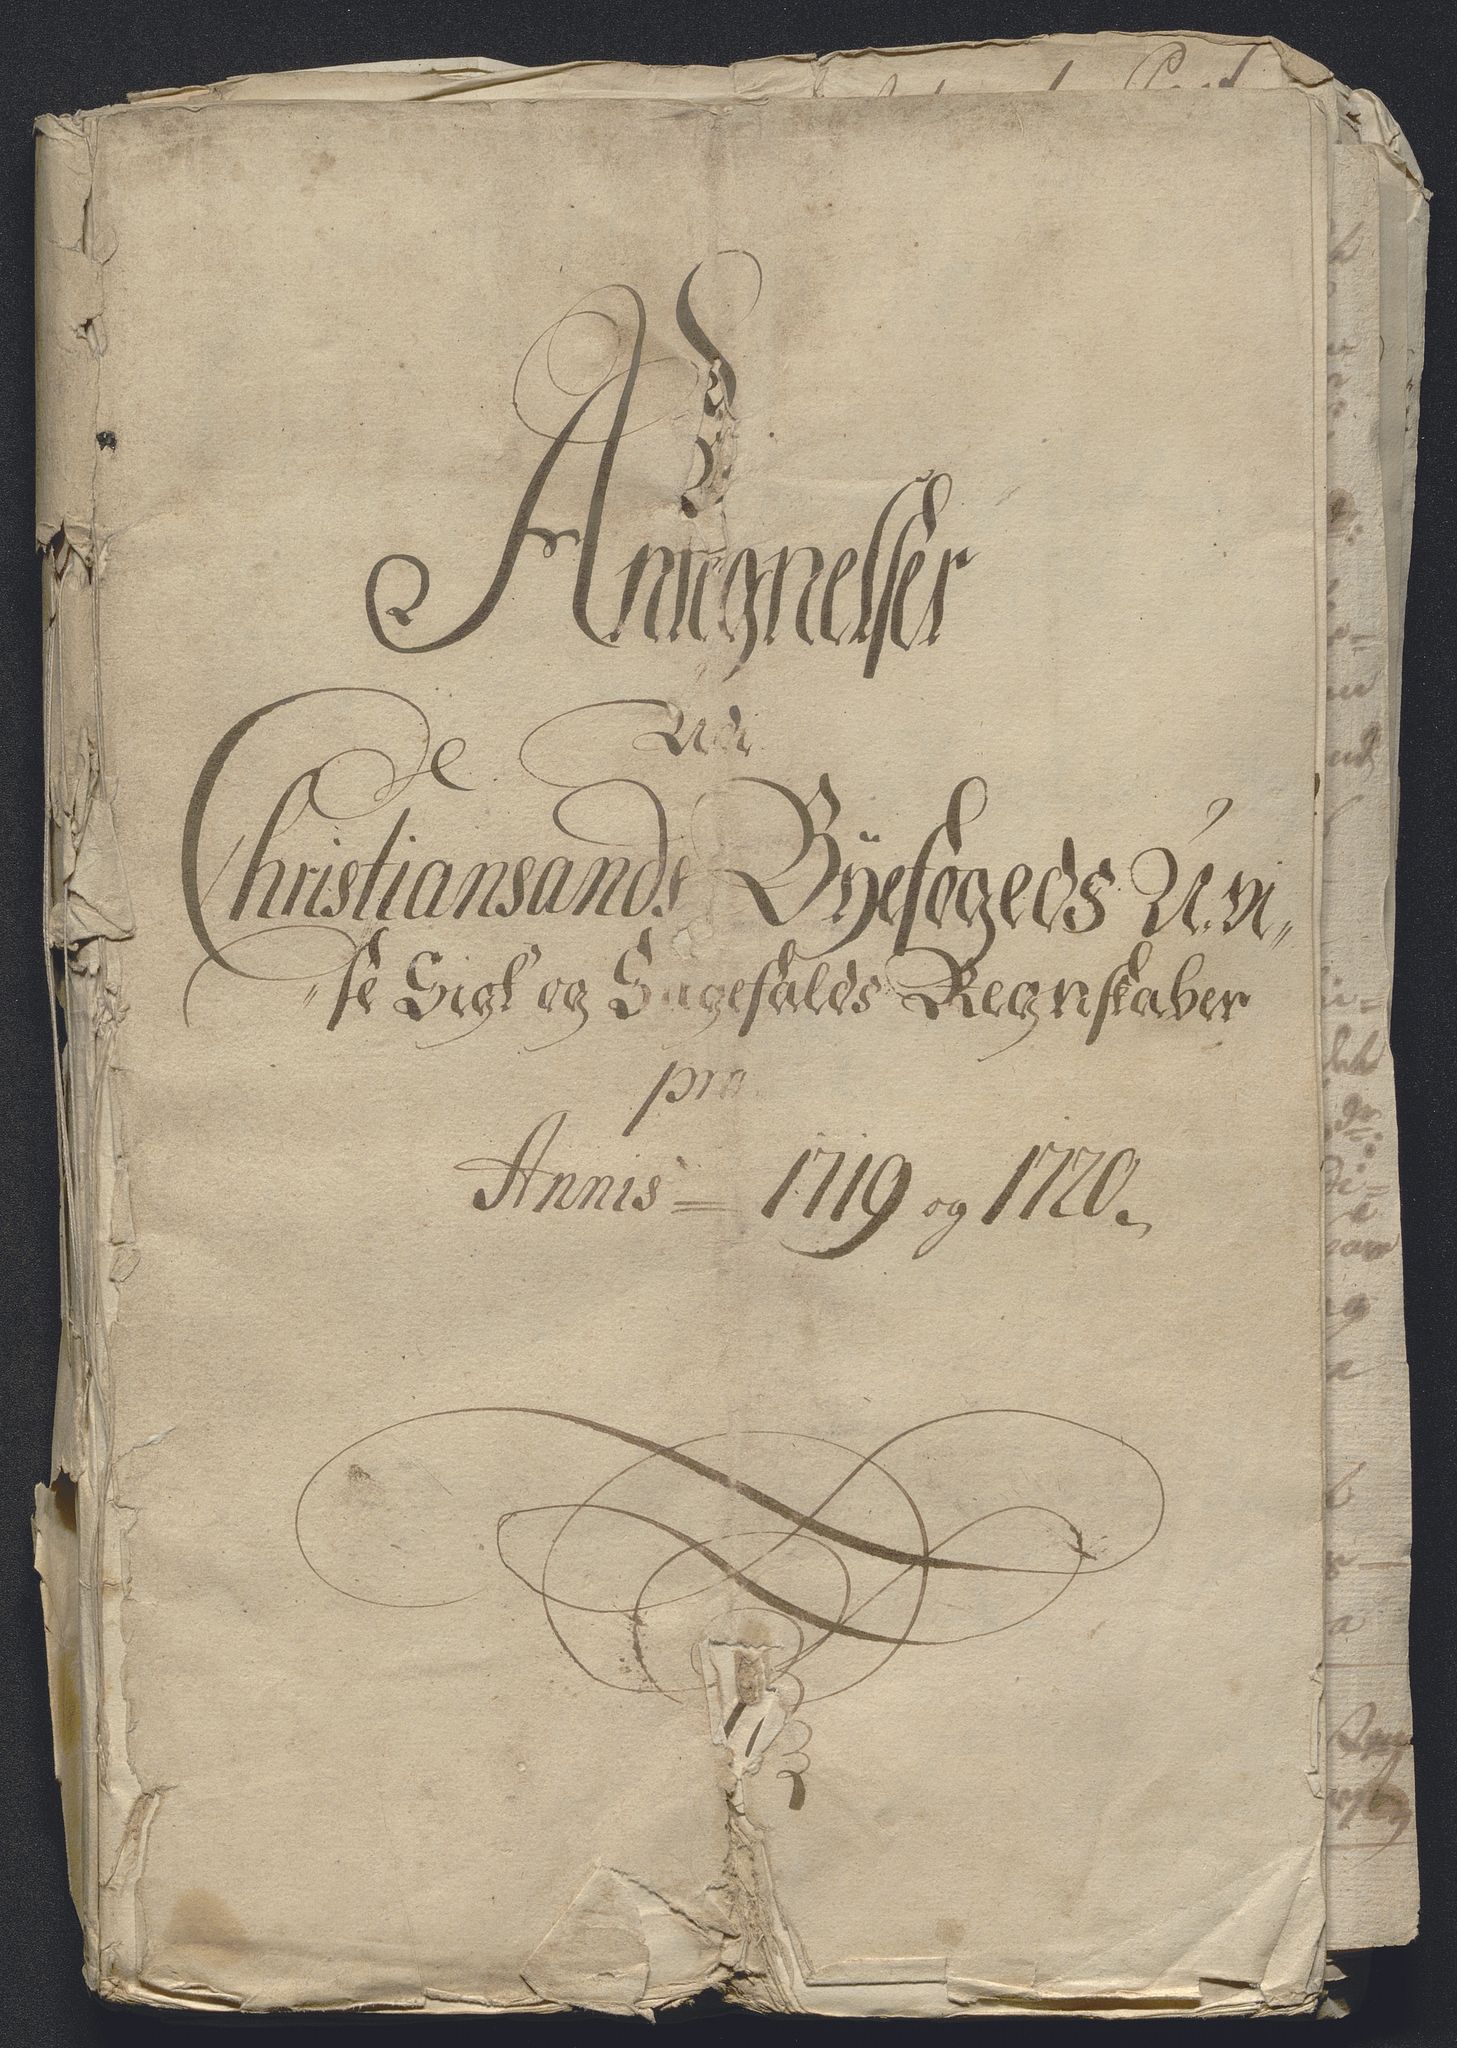 Antegnelser
Udi
Christiansands Byefogeds U.vi,,
,,sse Sigt og Sagefalds Regnskaber
pro
Annis = 1719 og 1720.